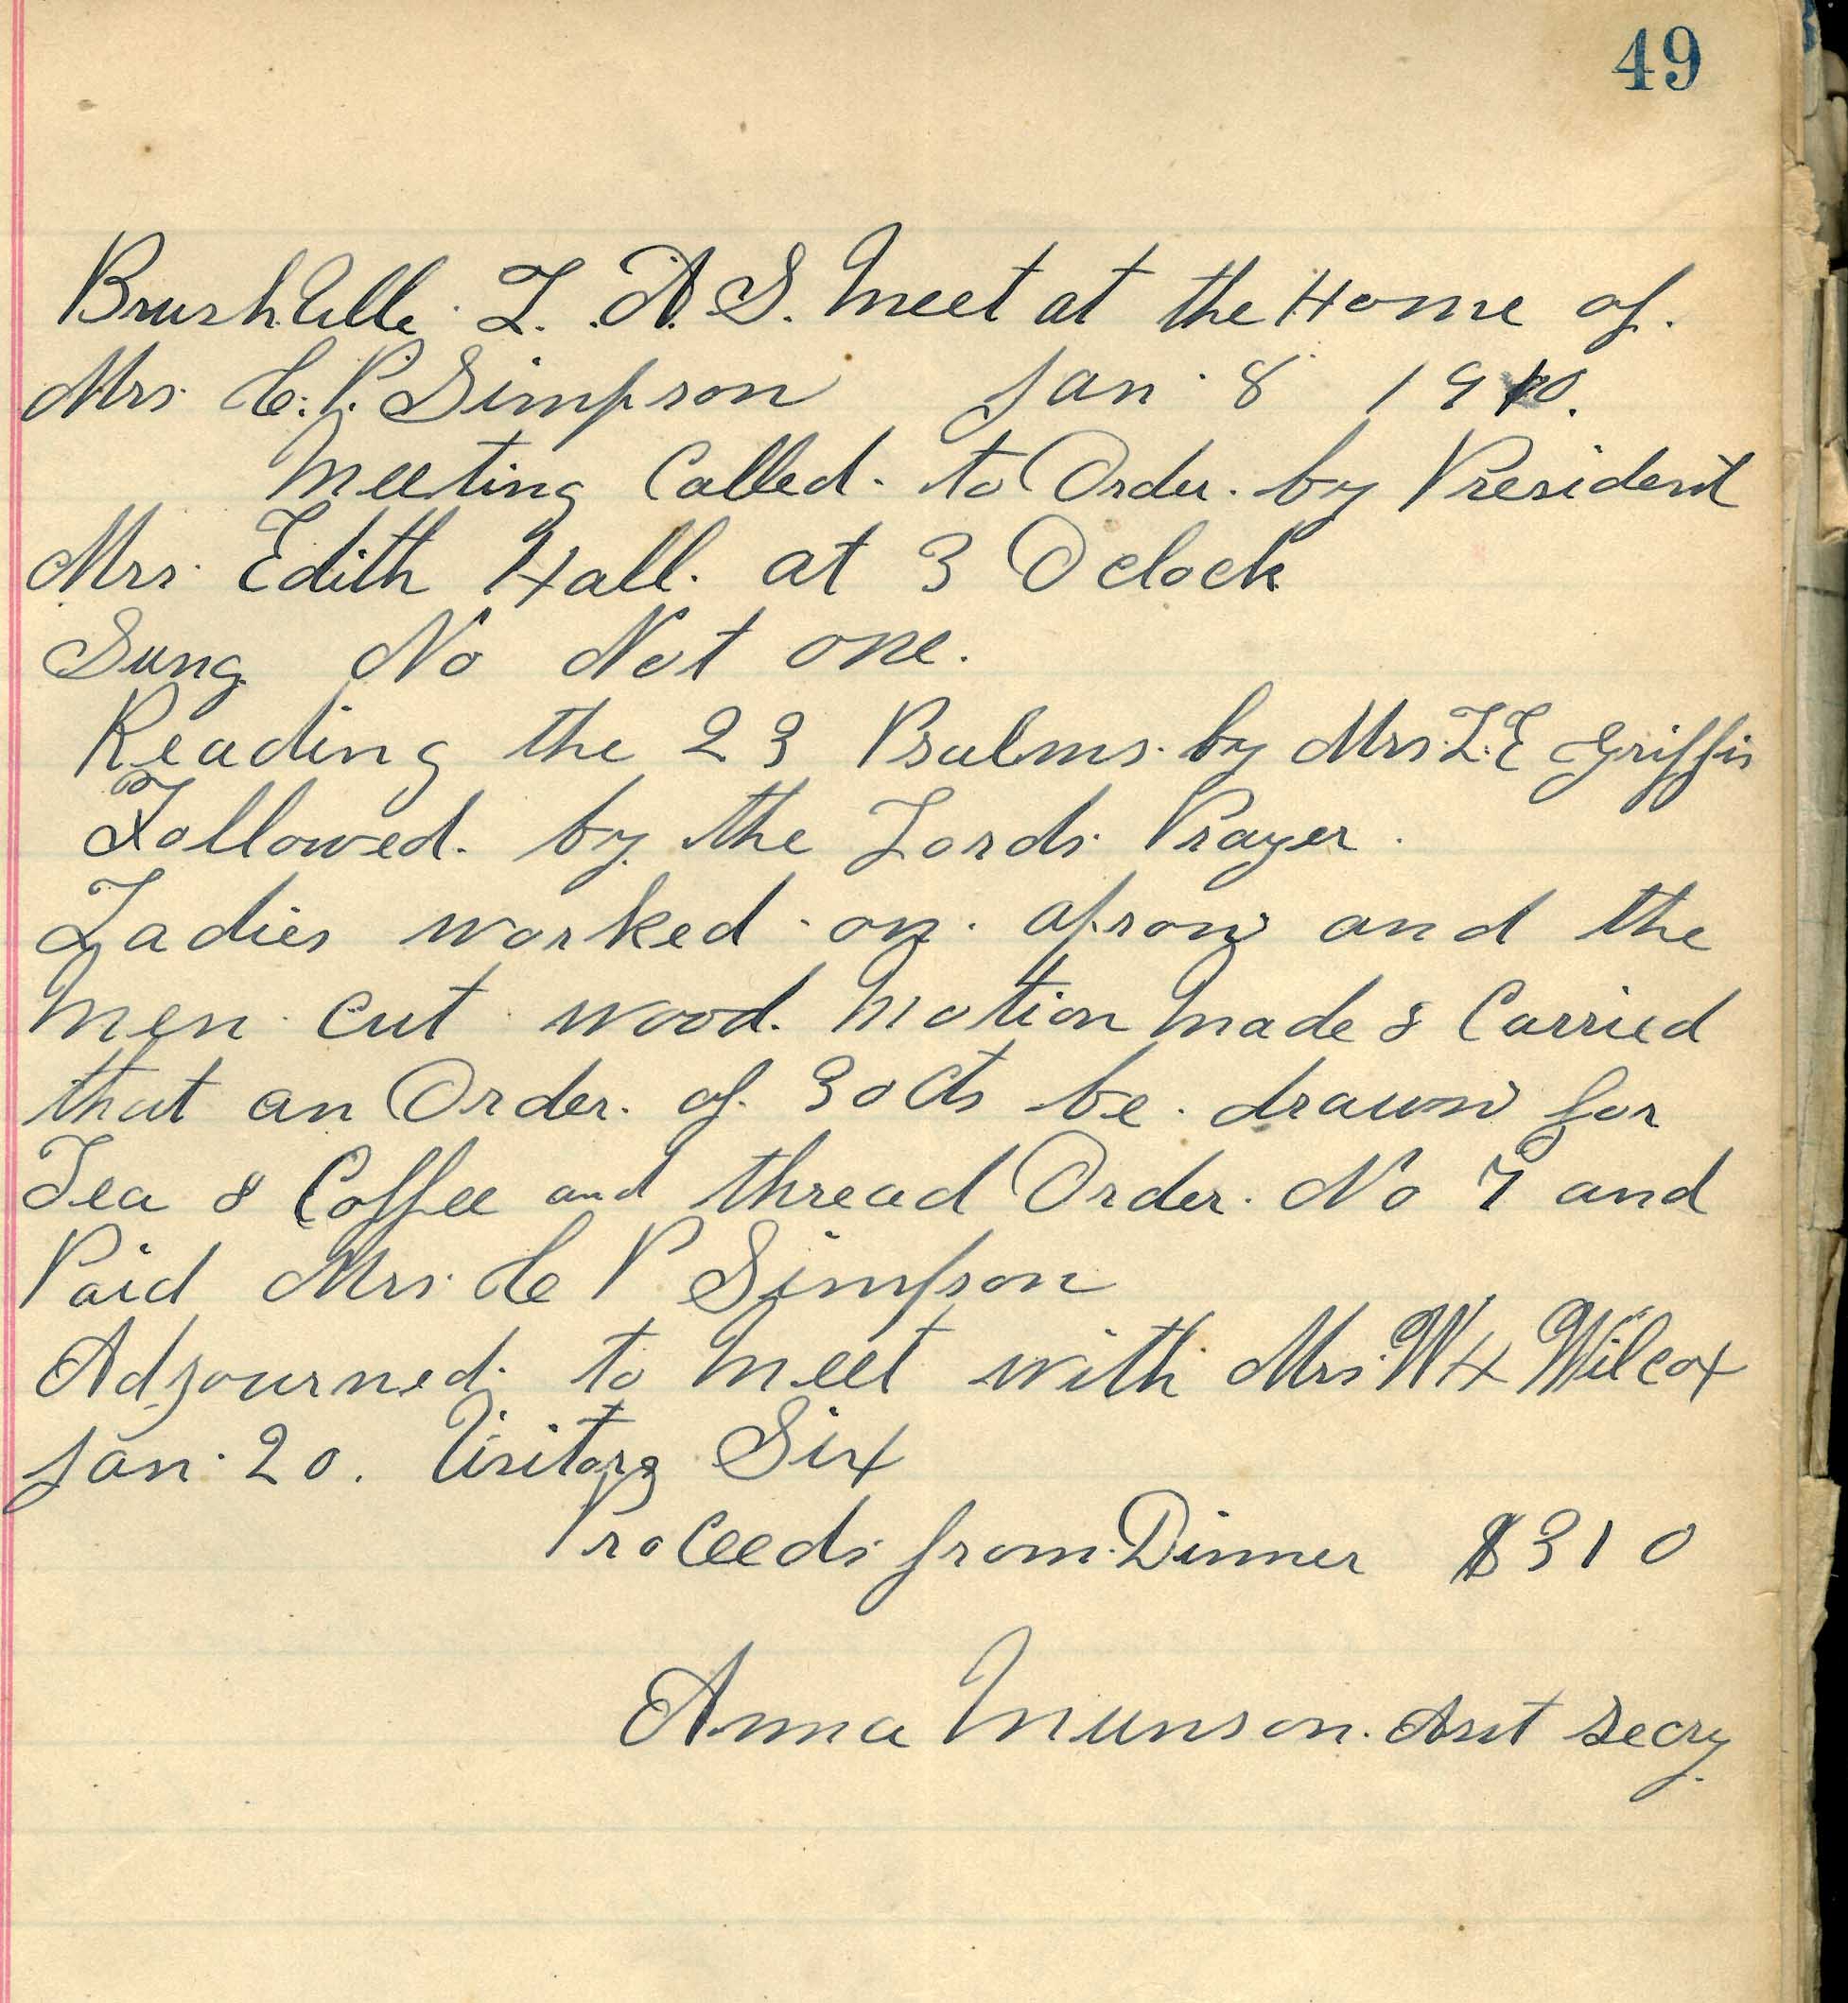 49
Brushville. L. A. S. Meet at the Home of.
Mrs. C. P. Simpson Jan. 8 1910.
Meeting Called. to Order. by President
Mrs. Edith Hall. at 3 O clock
Sung No Not one.
Reading the 23 Psalms. by Mrs. L. E Griffis
Followed. by the Lords Prayer.
Ladies worked. on. aprons and the
Men. cut wood. Motion Made & Carried
that an Order. of. 30 Cts be. drawn for
Tea & Coffee and thread Order. No 7 and
Paid Mrs. C P Simpson
Adjourned. to Meet with Mrs. W H Wilcox
Jan. 20. Visitors Six
Proceeds from. Dinner $310
Anna Munson. Asst Secry.